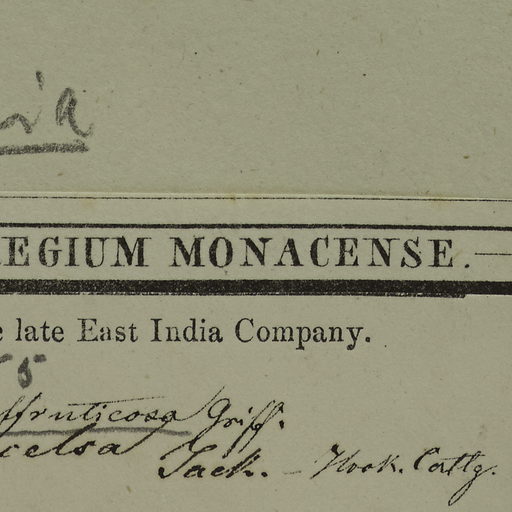 EGIUM MONACENSE.
late East India Company.
5
ffruticosa Griff.
celsa Jack. – Hook. Catlg.